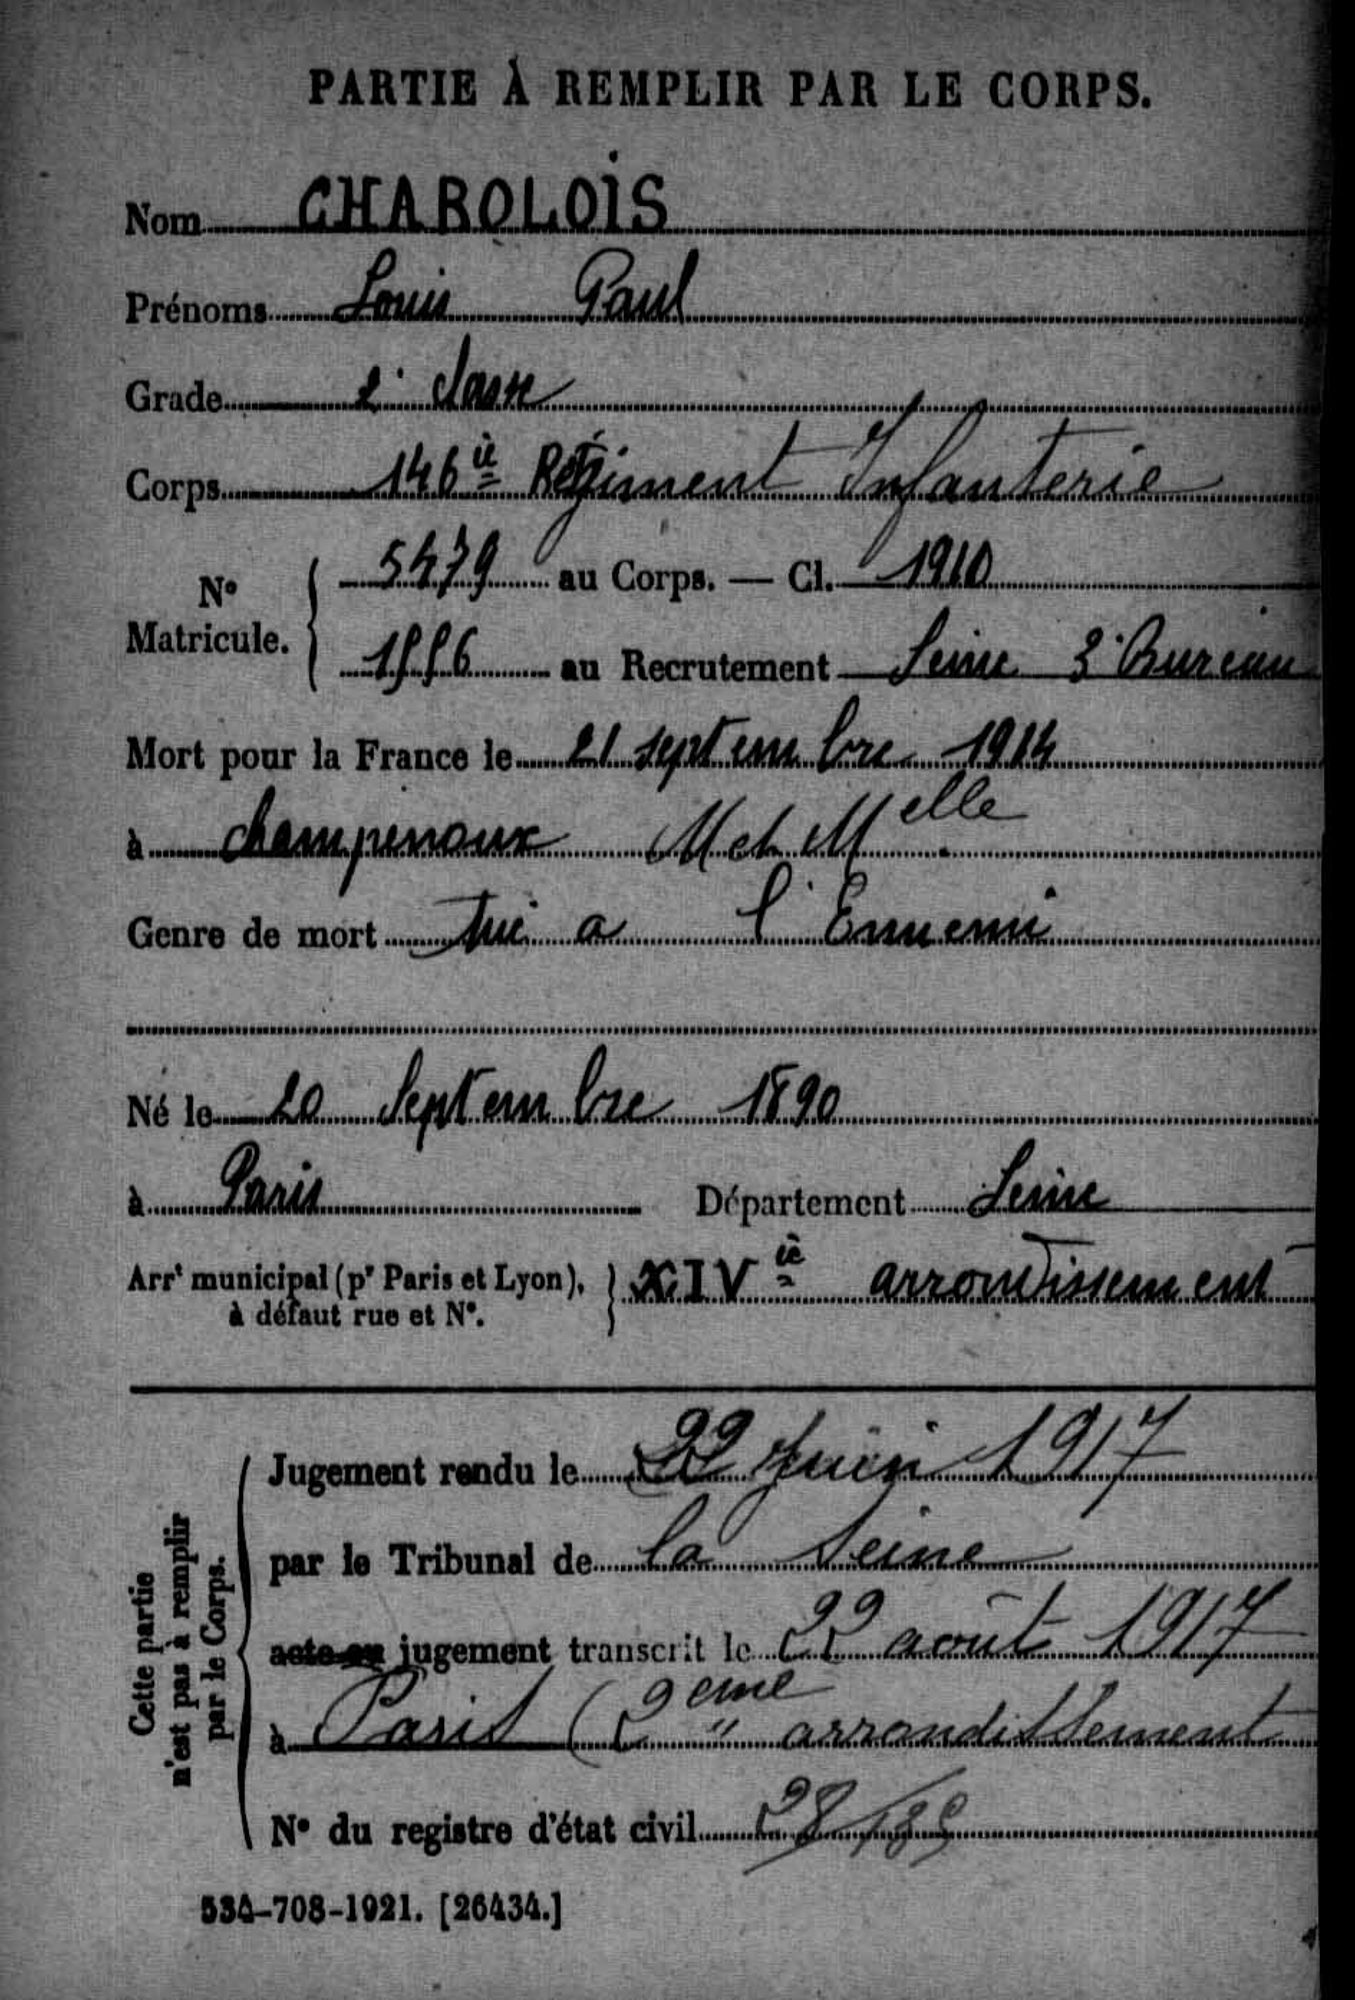 PARTIE À REMPLIR PAR LE CORPS.
Nom CHAROLOIS
Prénoms Louis Paul
Grade 2e classe
Corps 146è Régiment Infanterie
N° Matricule. 5479 au Corps. — Cl. 1910
1556 au Recrutement Seine 3e Bureau
Mort pour la France le 21 septembre 1914
à champenoux M et Melle
Genre de mort tué a l'Ennemi
Né le 20 Septembre 1890
à Paris Département Seine
Arrt municipal (pr Paris et Lyon), à défaut rue et N°. XIVè arrondissement
Cette partie n'est pas à remplir par le Corps.
Jugement rendu le 22 Juin 1917
par le Tribunal de la Seine
acte ou jugement transcrit le 22 août 1917
à Paris (2eme arrondissement
N° du registre d'état civil
534-708-1921. [26434.]